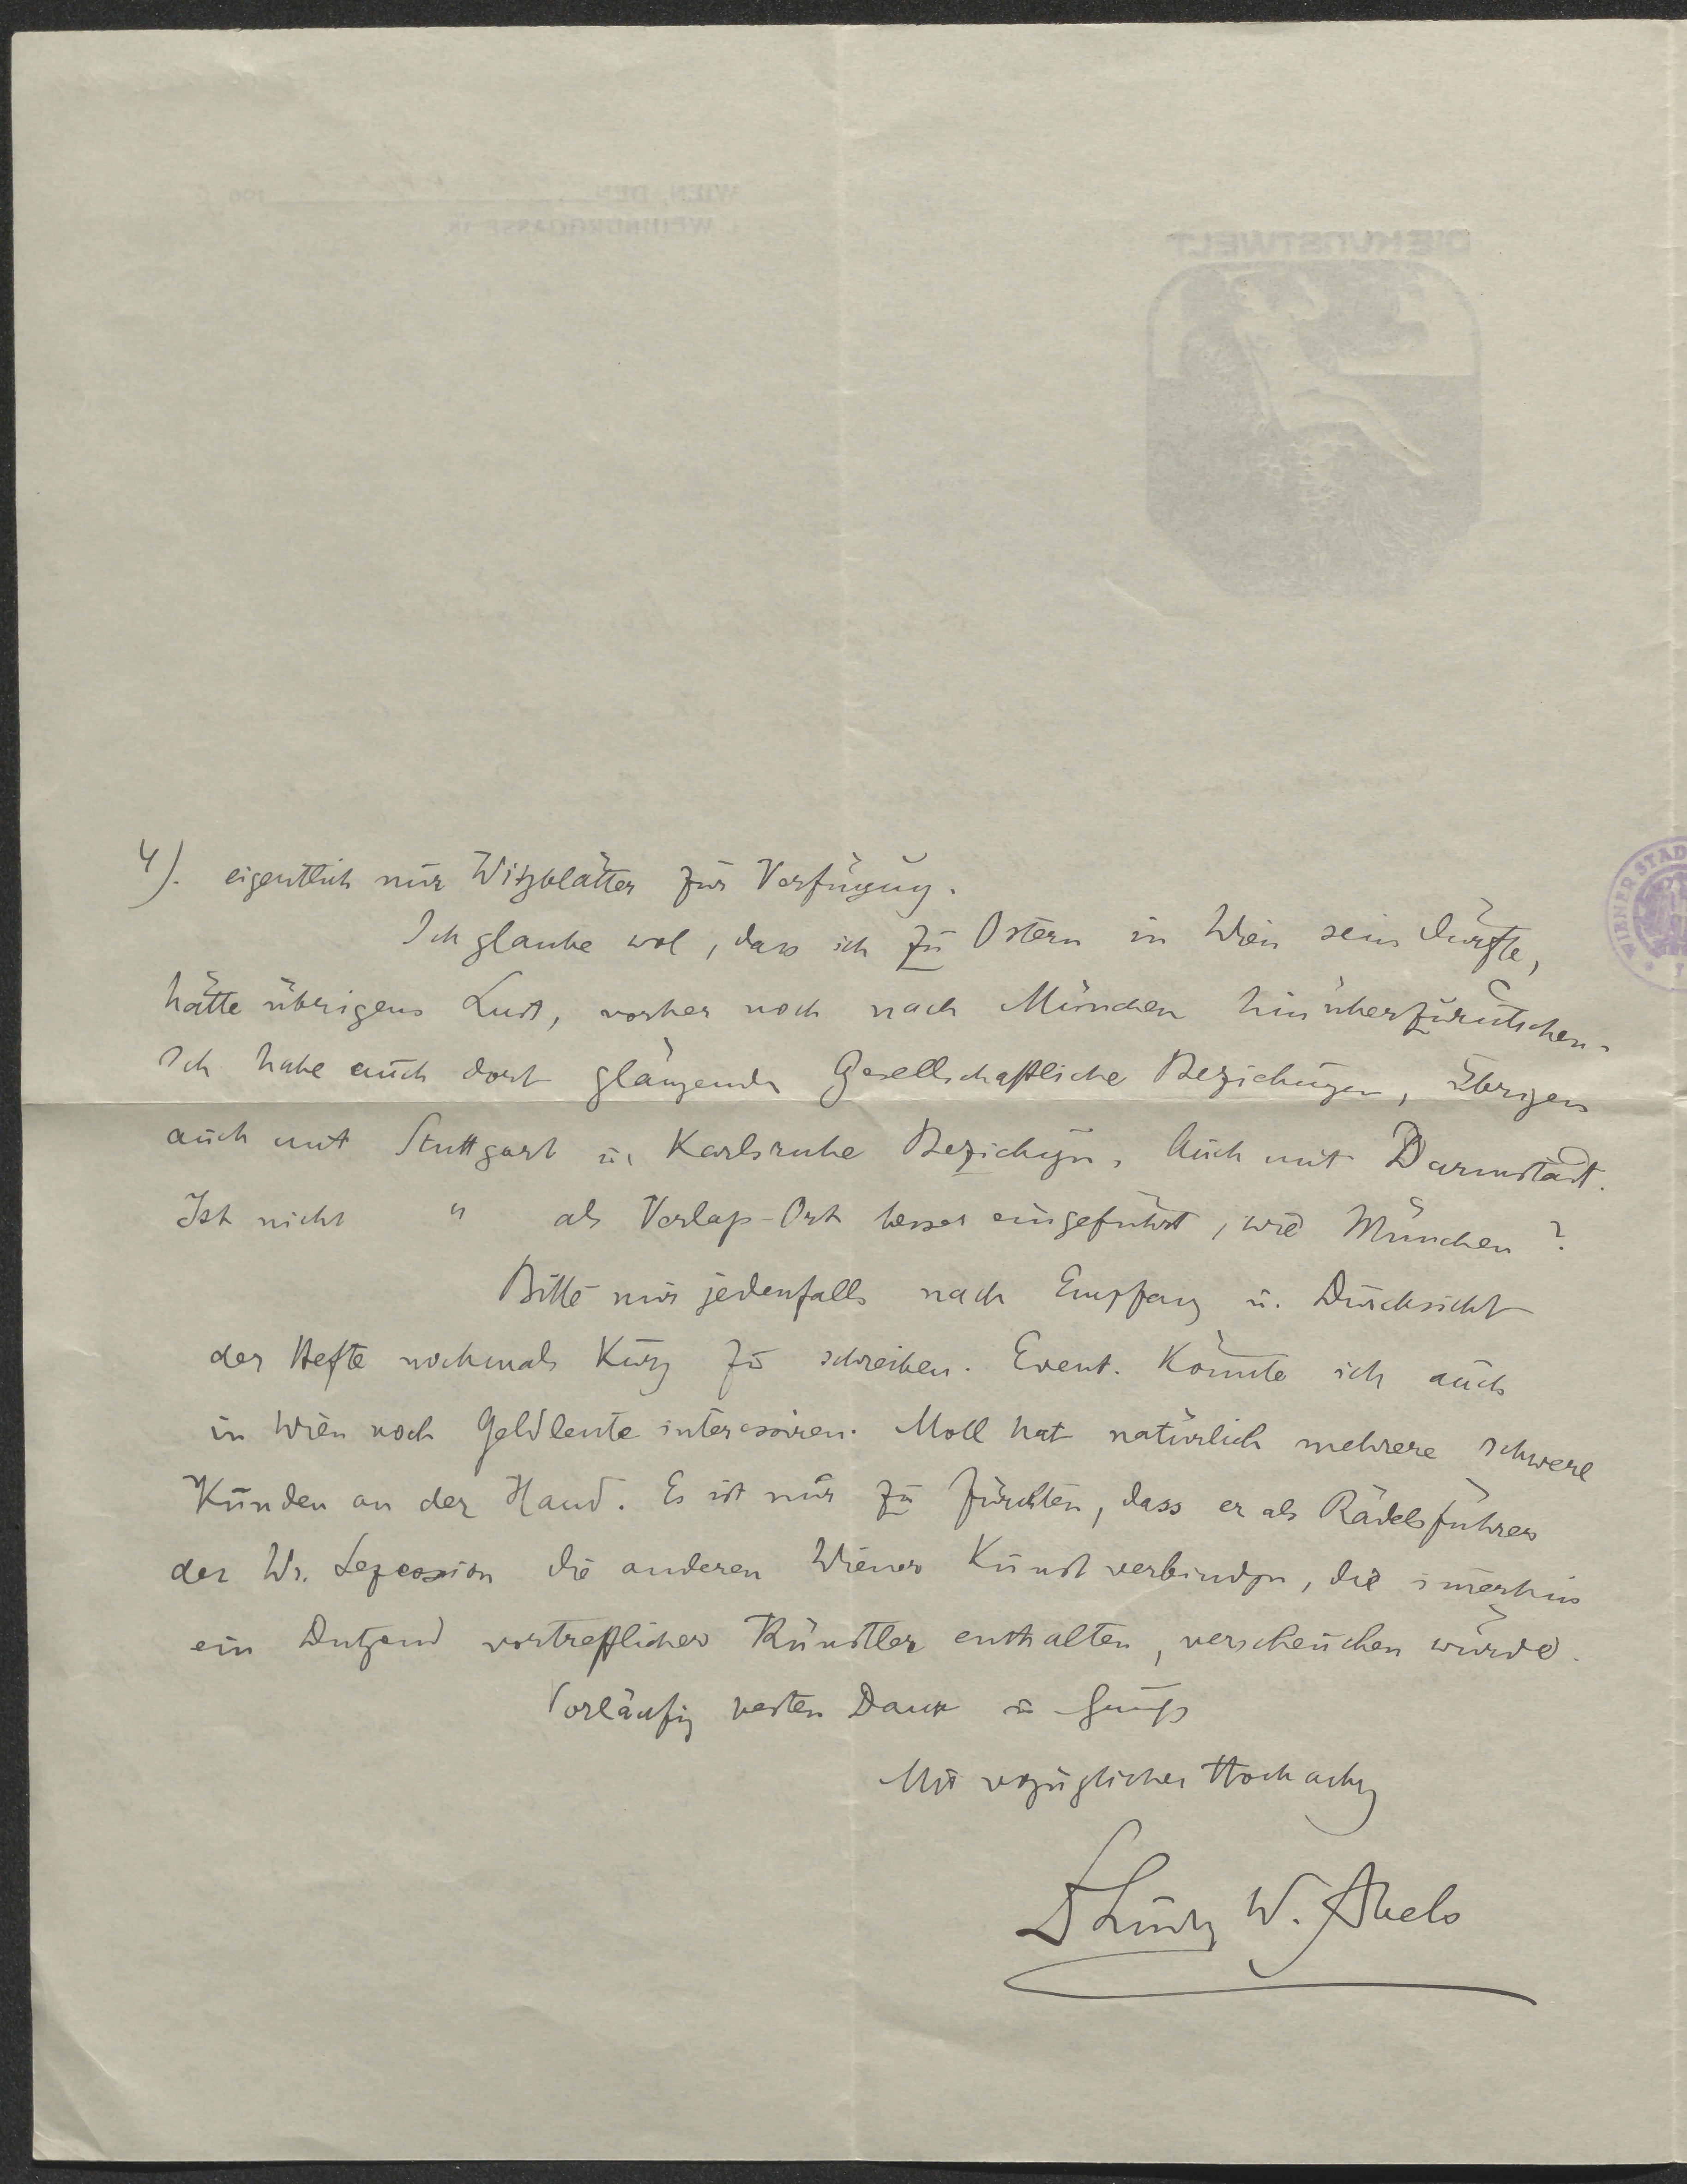 4). eigentlich nur Witzblätter zur Verfügung.
Ich glaube wol, dass ich zu Ostern in Wien sein dürfte,
hätte übrigens Lust, vorher noch nach München hinüberzurutschen.
Ich habe auch dort glänzende Gesellschaftliche Beziehungen, übrigens
auch mit Stuttgart u. Karlsruhe Beziehgn. Auch mit Darmstadt.
Ist nicht " als Verlags-Ort besser eingeführt, wie München?
Bitte mir jedenfalls nach Empfang u. Durchsicht
der Hefte nochmals Kurz zu schreiben. Event. Könnte ich auch
in Wien noch Geldleute interessiren. Moll hat natürlich mehrere schwere
Kunden an der Hand. Es ist nur zu fürchten, dass er als Rädelsführer
der Wr. Sezession die anderen Wiener Kunstverbindgn, die imerhin
ein Dutzend vortrefflicher Künstler enthalten, verscheuchen würde.
Vorläufig besten Dank u Gruss
Mit vorzüglicher Hochachtg
Ludw W. Abels
DIE KUNSTWELT
WIEN, DEN 190
I. WEIHBURGGASSE 18.
WIENER STAD